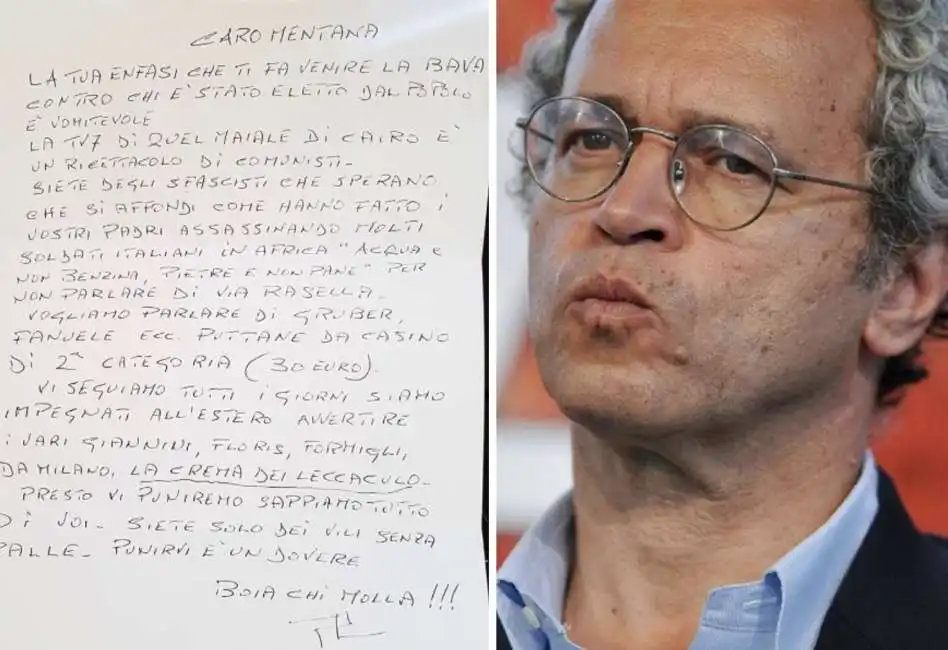 CARO MENTANA
LA TUA ENFASI CHE TI FA VENIRE LA BAVA
CONTRO CHI E' STATO ELETTO DAL POPOLO
E' VOMITEVOLE
LA TV7 DI QUEL MAIALE DI CAIRO E'
UN RICETTACOLO DI COMUNISTI-
SIETE DEGLI SFASCISTI CHE SPERANO
CHE SI AFFONDI COME HANNO FATTO I
VOSTRI PADRI ASSASSINANDO MOLTI
SOLDATI ITALIANI IN AFRICA "ACQUA E
NON BENZINA, PIETRE E NON PANE" PER
NON PARLARE DI VIA RASELLA-
VOGLIAMO PARLARE DI GRUBER,
FANUELE ECC. PUTTANE DA CASINO
DI 2ª CATEGORIA (30 EURO).
VI SEGUIAMO TUTTI I GIORNI SIAMO
IMPEGNATI ALL'ESTERO AVVERTIRE
I VARI GIANNINI, FLORIS, FORMIGLI,
DA MILANO, LA CREMA DEI LECCACULO-
PRESTO VI PUNIREMO SAPPIAMO TUTTO
DI VOI- SIETE SOLO DEI VILI SENZA
PALLE- PUNIRVI E' UN DOVERE
BOIA CHI MOLLA!!!